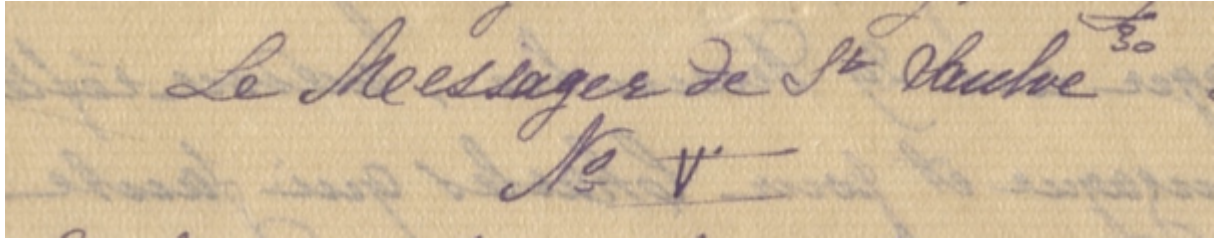 Le Messager de St Saulve 30
No V